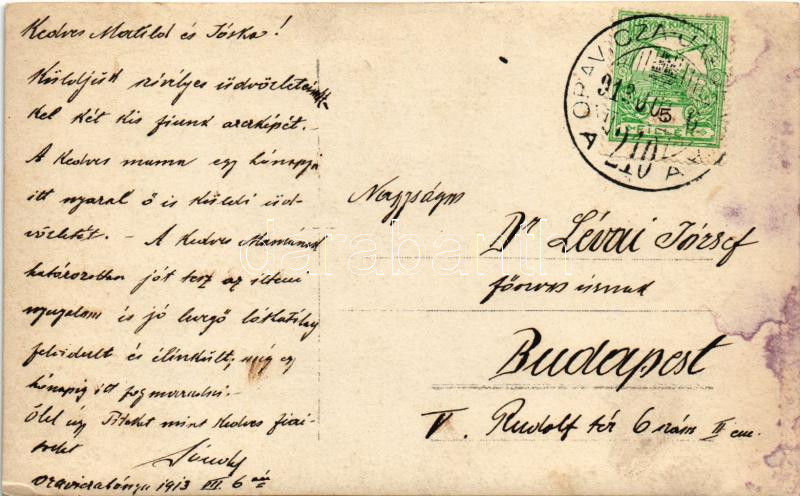 Kedves Matild és Jóska!
Küldjük szívélyes üdvözleteink-
kel két kis fiunk arcképét.-
A kedves mama egy hónapja
itt nyaral ő is küldi üd-
vözletét.- A kedves Mamának
határozottan jót tesz az itteni
nyugalom és jó levegő
felvidult és élénkült, még egy
hónapig itt fog maradni.-
Ölel úgy Titeket mint kedves fiai-
tokat
Sándor
Oraviczabánya 1913 VII. 6 án
Nagyságos
Dr Lévai József
főorvos úrnak
Budapest
V. Rudolf tér 6 szám II em.
ORAVICZA
913
210
5
FILLÉR
darabanth